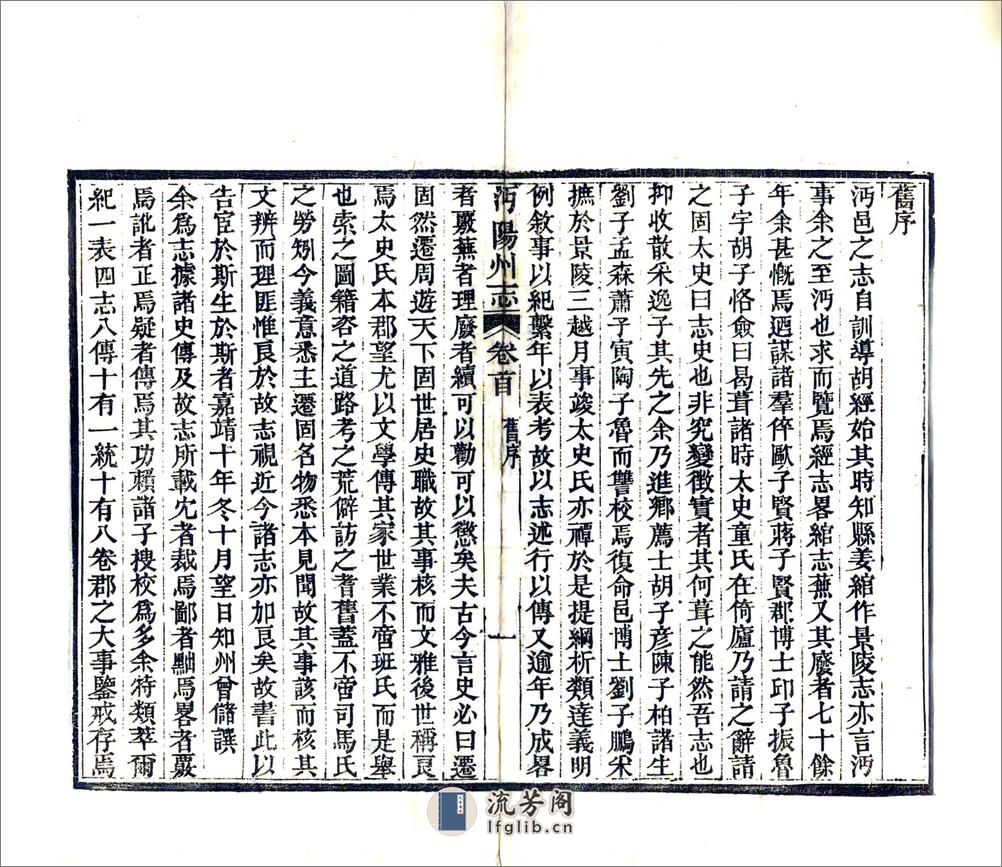 舊序
沔邑之志自訓導胡經始其時知縣姜綰作景陵志亦言沔
事余之至沔也求而覽焉經志畧綰志蕪又其廢者七十餘
年余甚慨焉廼謀諸羣倅歐子賢蔣子賢郡博士邱子振魯
子宇胡子恪僉曰曷葺諸時太史童氏在倚廬乃請之辭請
之固太史曰志史也非究變徵實者其何葺之能然吾志也
抑收散采逸子其先之余乃進鄉薦士胡子彦陳子柏諸生
劉子孟森蕭子寅陶子魯而讐校焉復命邑博士劉子鵬宷
摭於景陵三越月事竣太史氏亦禫於是提綱析類達義明
例敘事以紀繫年以表考故以志述行以傳又逾年乃成畧
沔陽州志 卷首 舊序 一
者覈蕪者理廢者續可以勸可以懲矣夫古今言史必曰遷
固然遷周遊天下固世居史職故其事核而文雅後世稱良
焉太史氏本郡望尤以文學傳其家世業不啻班氏而是舉
也索之圖籍咨之道路考之荒僻訪之耆舊蓋不啻司馬氏
之勞矧今義意悉主遷固名物悉本見聞故其事該而核其
文辨而理匪惟良於故志視近今諸志亦加良矣故書此以
告宦於斯生於斯者嘉靖十年冬十月望日知州曾儲譔
余為志據諸史傳及故志所載宂者裁焉鄙者黜焉畧者覈
焉訛者正焉疑者傳焉其功賴諸子搜校為多余符類萃爾
紀一表四志八傳十有一統十有八卷郡之大事鑒戒存焉
流芳阁
lfglib.cn